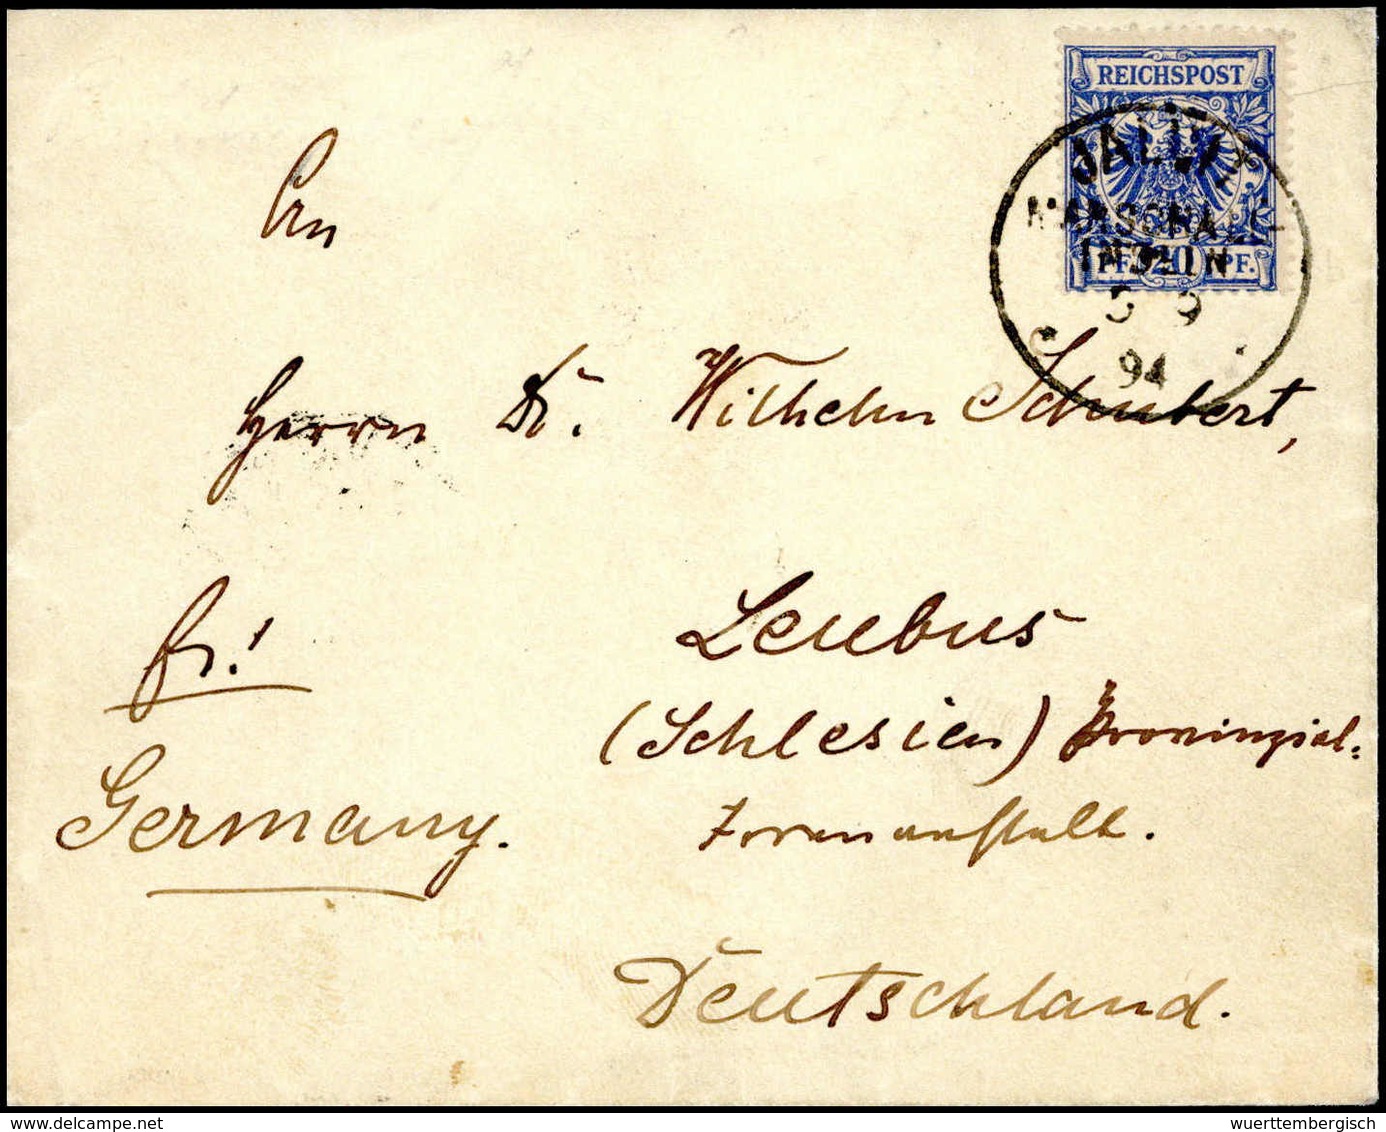 REICHSPOST
PF. 20 PF.
JALUIT
MARSCHALL
INSELN
9
94
An
Herrn Dr. Wilhelm Schubert,
Leubus
(Schlesien) Provinzial-
Irrenanstalt.
Germany.
Deutschland.
wuerttembergisch